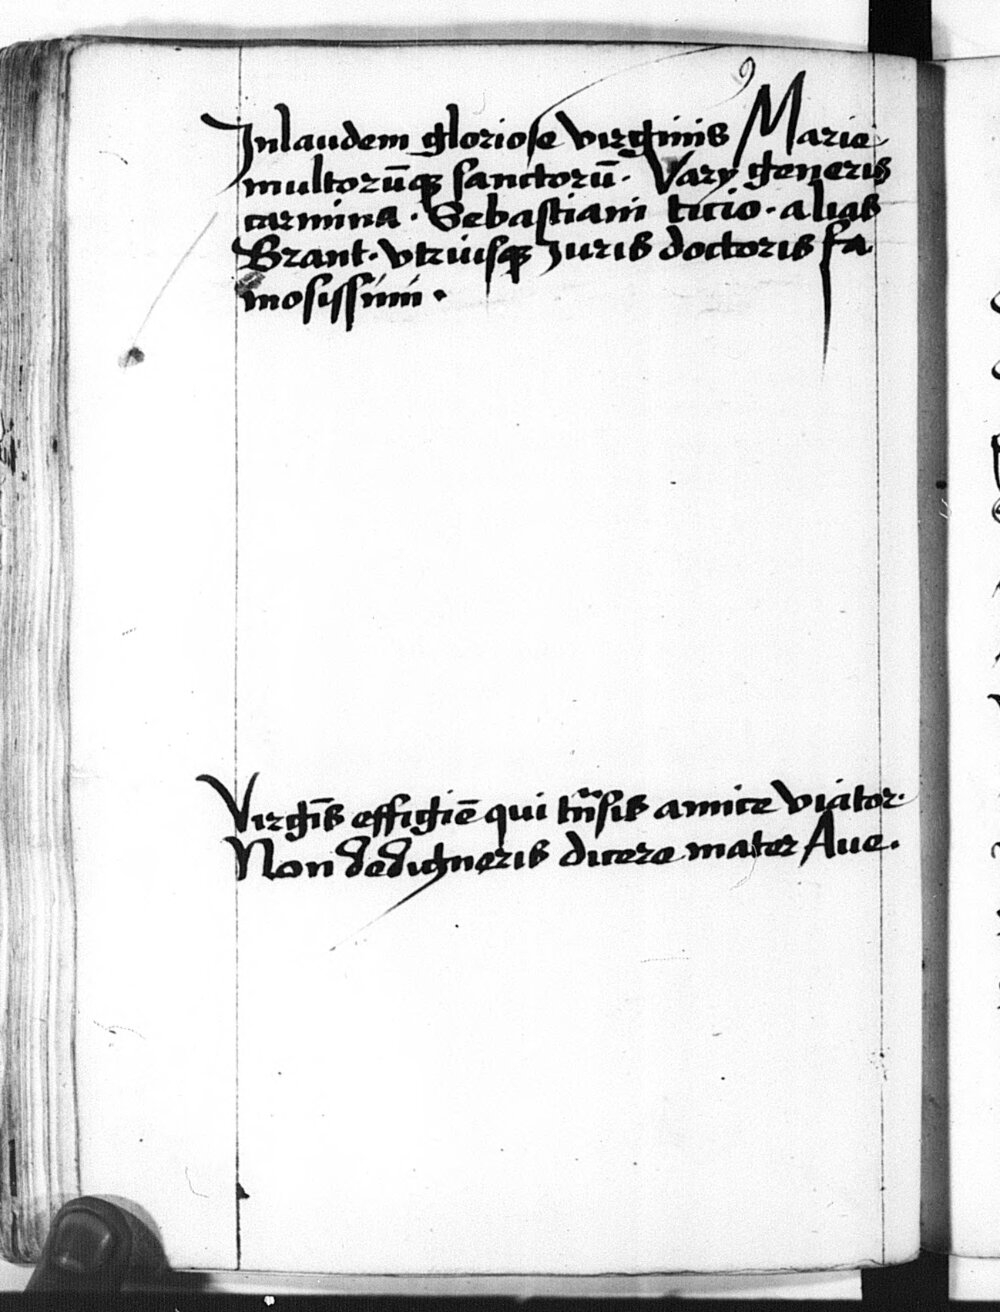 Jnlaudem gloriose virginis Marie
multorūqꝫ sanctorū. Vary generis
carmina. Sebastiani ticio. alias
Brant. vtriusqꝫ Juris doctoris fa
mosissimi.
Virgīs effigiē qui trāsis amice viator.
Non dedigneris dicere mater Aue.